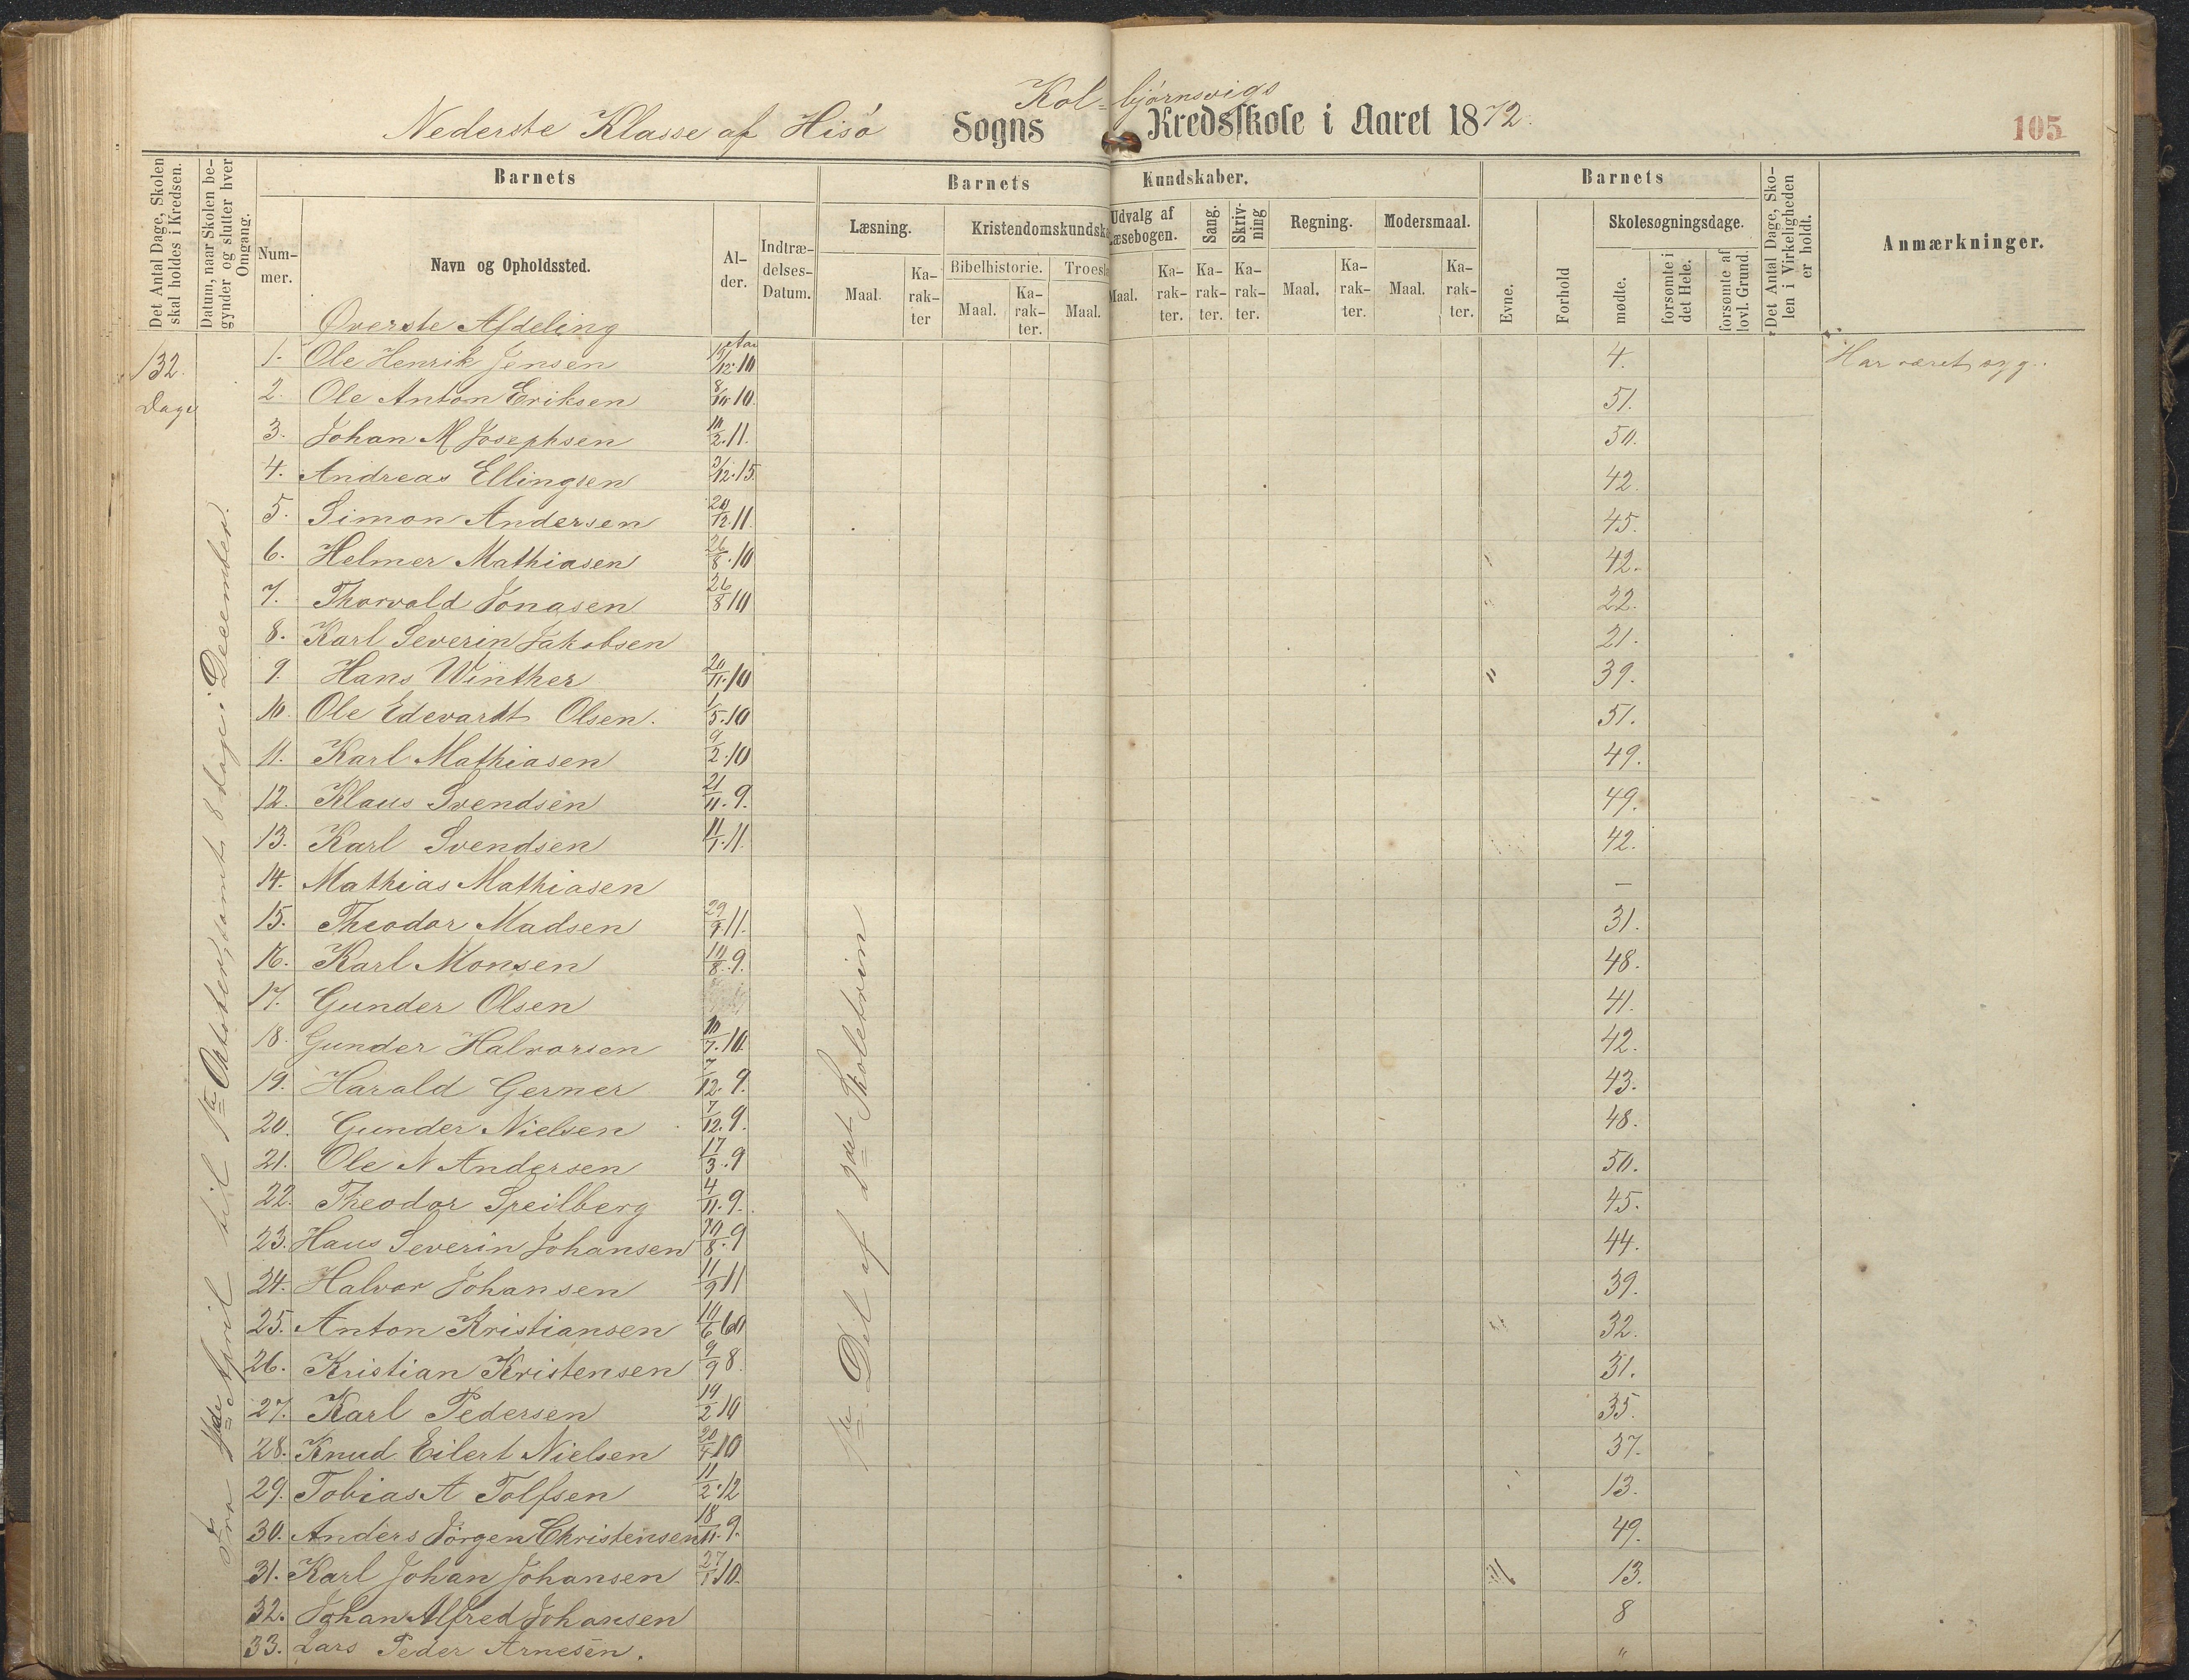 Kolbjørnsvigs
Nederste Klasse af Hisø Sogns Kredsskole i Aaret 1872.
105
Det Antal Dage, Skolen skal holdes i Kredsen.
Datum, naar Skolen begynder og slutter hver Omgang.
Barnets
Barnets Kundskaber.
Barnets
Det Antal Dage, Skolen i Virkeligheden er holdt.
Anmærkninger.
Nummer.
Navn og Opholdssted.
Alder.
Indtrædelses-Datum.
Læsning.
Kristendomskundska
Udvalg af Læsebogen.
Sang.
Skrivning
Regning.
Modersmaal.
Evne.
Forhold
Skolesøgningsdage.
Bibelhistorie.
Troesl
Maal. Karakter Maal. Karakter. Maal. Maal. Karakter. Karakter. Karakter. Maal. Karakter. Maal. Karakter.
mødte.
forsømte i det Hele.
forsømte af lovl. Grund.
Øverste Afdeling
132. Dage
Fra 1ste April til 1ste Oktober, samt 8 dage i December.
1ste Del af 2det Skoletrin
1. Ole Henrik Jensen 15/12 10 4. Har været syg.
2. Ole Anton Eriksen 8/10 10. 51.
3. Johan M Josephsen 10/2 11. 50.
4. Andreas Ellingsen 3/12 15. 42.
5. Simon Andersen 20/12 11. 45.
6. Helmer Mathiasen 26/8 10 42.
7. Thorvald Jonasen 26/8 10 22.
8. Karl Severin Jakobsen 21.
9. Hans Winther 20/11 10 " 39.
10. Ole Edevardt Olsen. 1/5 10 51.
11. Karl Mathiasen 9/2 10 49.
12. Klaus Svendsen 21/11 9. 49.
13. Karl Svendsen 11/1 11. 42.
14. Mathias Mathiasen —
15. Theodor Madsen 29/9 11. 31.
16. Karl Monsen 10/8 9. 48.
17. Gunder Olsen 41.
18. Gunder Halvorsen 10/7 10. 42.
19. Harald Gerner 7/12 9. 43.
20. Gunder Nielsen 7/12 9. 48.
21. Ole N Andersen 17/3 9 50.
22. Theodor Speilberg 4/11 9. 45.
23. Hans Severin Johansen 10/8 9 44.
24. Halvor Johansen 11/9 11 39.
25. Anton Kristiansen 10/6 32.
26. Kristian Kristensen 9/9 8. 31.
27. Karl Pedersen 19/2 10 35.
28. Knud Eilert Nielsen 20/4 10 37.
29. Tobias A Tolfsen 11/2 12 13.
30. Anders Jörgen Christensen 18/11 9. 49.
31. Karl Johan Johansen 27/1 10. 13.
32. Johan Alfred Johansen 8
33. Lars Peder Arnesen. "